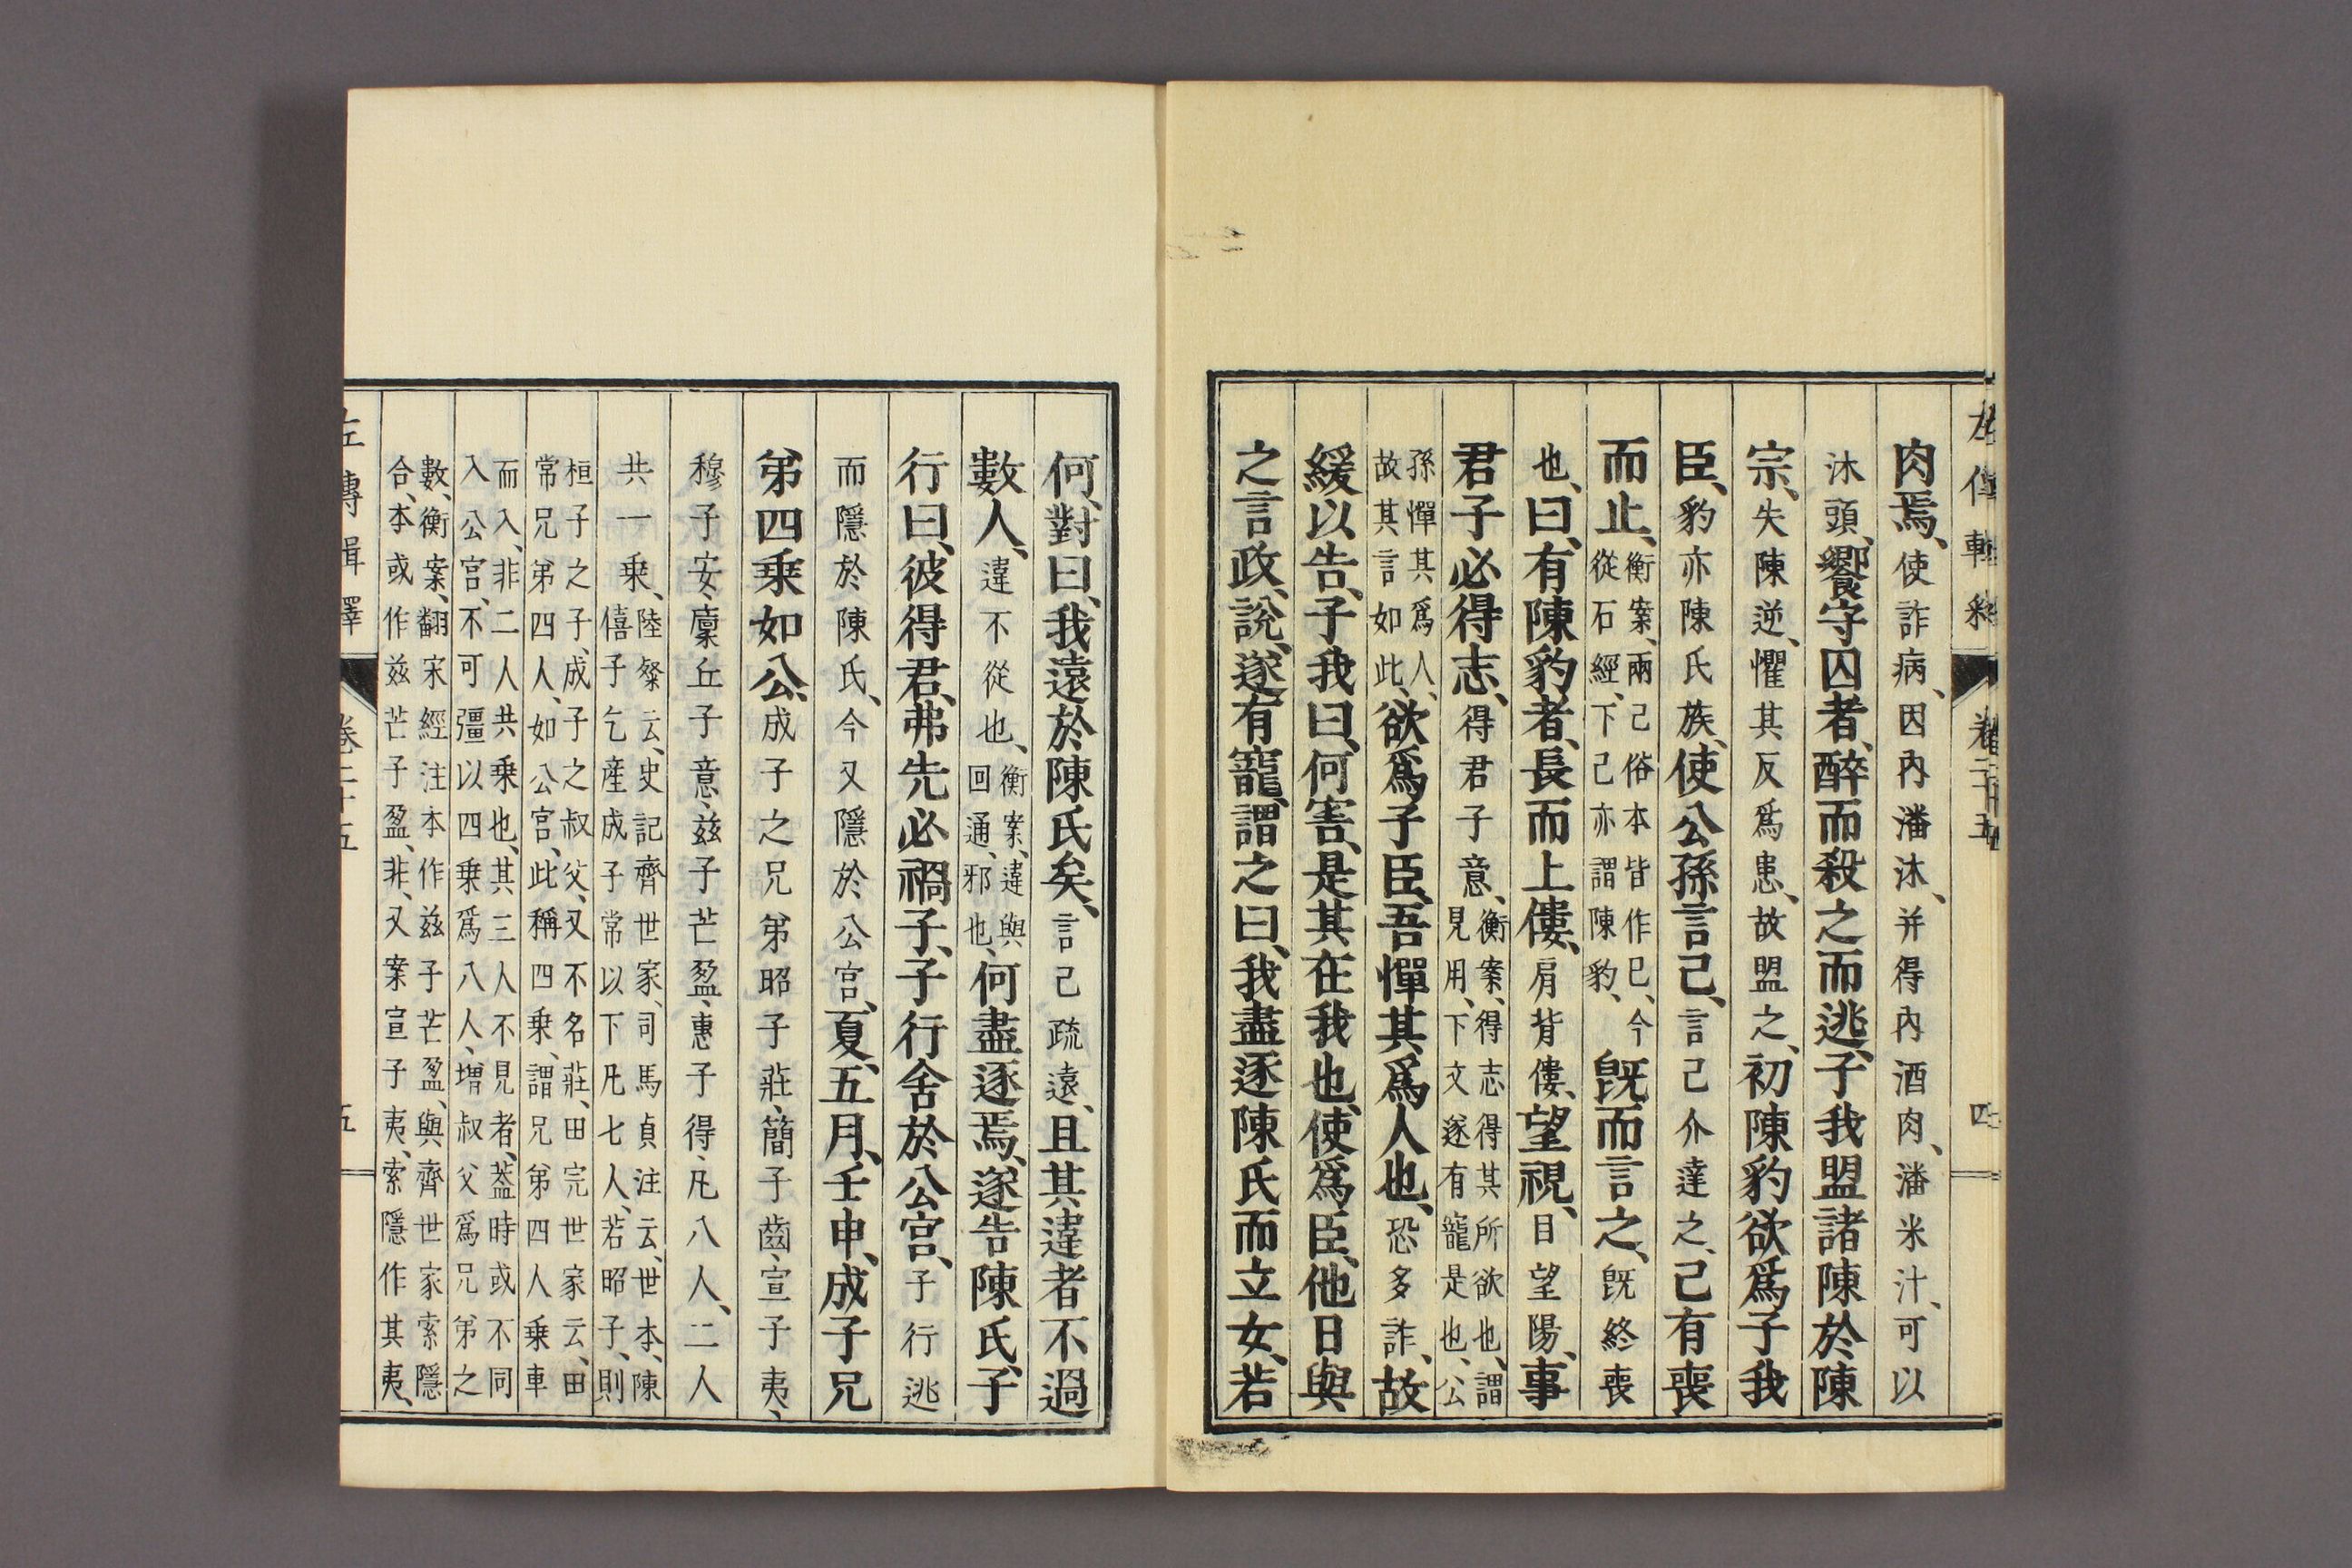 左傳輯釋 卷二十五 四
肉焉、使詐病、因內潘沐、并得內酒肉、潘米汁、可以
沐頭、饗守囚者、醉而殺之而逃、子我盟諸陳於陳
宗、失陳逆、懼其反爲患、故盟之、初陳豹欲爲子我
臣、豹亦陳氏族、使公孫言己、言己介達之、己有喪
而止、衡案、兩己俗本皆作巳、今從石經、下己亦謂陳豹、旣而言之、旣終喪
也、曰、有陳豹者、長而上僂、肩背僂、望視、目望陽、事
君子必得志、得君子意、衡案、得志得其所欲也、謂見用、下文遂有寵是也、公
孫憚其爲人、故其言如此、欲爲子臣、吾憚其爲人也、恐多詐、故
緩以告、子我曰、何害、是其在我也、使爲臣、他日與
之言政、說、遂有寵、謂之曰、我盡逐陳氏而立女、若
何、對曰、我遠於陳氏矣、言己疏遠、且其違者不過
數人、違不從也、衡案、違與回通、邪也、何盡逐焉、遂告陳氏、子
行曰、彼得君、弗先必禍子、子行舍於公宮、子行逃
而隱於陳氏、今又隱於公宮、夏、五月、壬申、成子兄
弟四乗如公、成子之兄弟昭子莊、簡子齒、宣子夷、
穆子安、廩丘子意、兹子芒盈、惠子得、凡八人、二人
共一乗、陸粲云、史記齊世家、司馬貞注云、世本、陳僖子乞產成子常以下凡七人、若昭子、則
桓子之子、成子之叔父、又不名莊、田完世家云、田常兄弟四人、如公宮、此稱四乗、謂兄弟四人乗車
而入、非二人共乗也、其三人不見者、蓋時或不同入公宮、不可彊以四乗爲八人、增叔父爲兄弟之
數、衡案、翻宋經注本作兹子芒盈、與齊世家索隱合、本或作兹芒子盈、非、又案宣子夷、索隱作其夷、
左傳輯釋 卷二十五 五